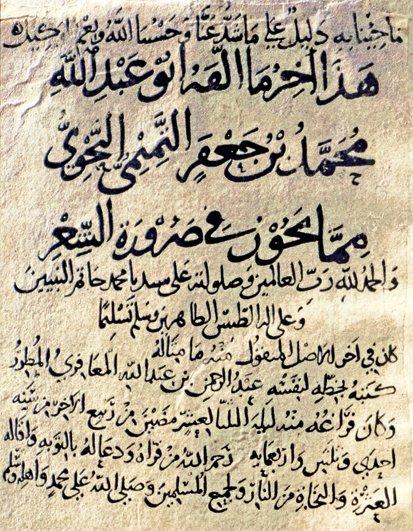 ما جئنا به دليل على ما شذ عنا وحسبنا الله ونعم الوكيل
هذا اخر ما الفه ابو عبد الله
محمد بن جعفر التميمي النحوي
مما يجوز في ضرورة الشعر
والحمد لله رب العالمين وصلواته على سيدنا محمد خاتم النبيين
وعلى اله الطيبين الطاهرين وسلم تسليما
كان في اخر الاصل المنقول منه ما مثاله
كتبه بخطه لنفسه عبد الرحمن بن عبد الله المعافري
وكان فراغه منه ليلة الثلثا لعشر مضين من ربيع الاخر من سنة
احدى وثلثين واربعمايه رحم الله من قراه ودعا له بالتوبه واقاله
العثرة والنجاة من النار ولجميع المسلمين وصلى الله على محمد واهله وسلم